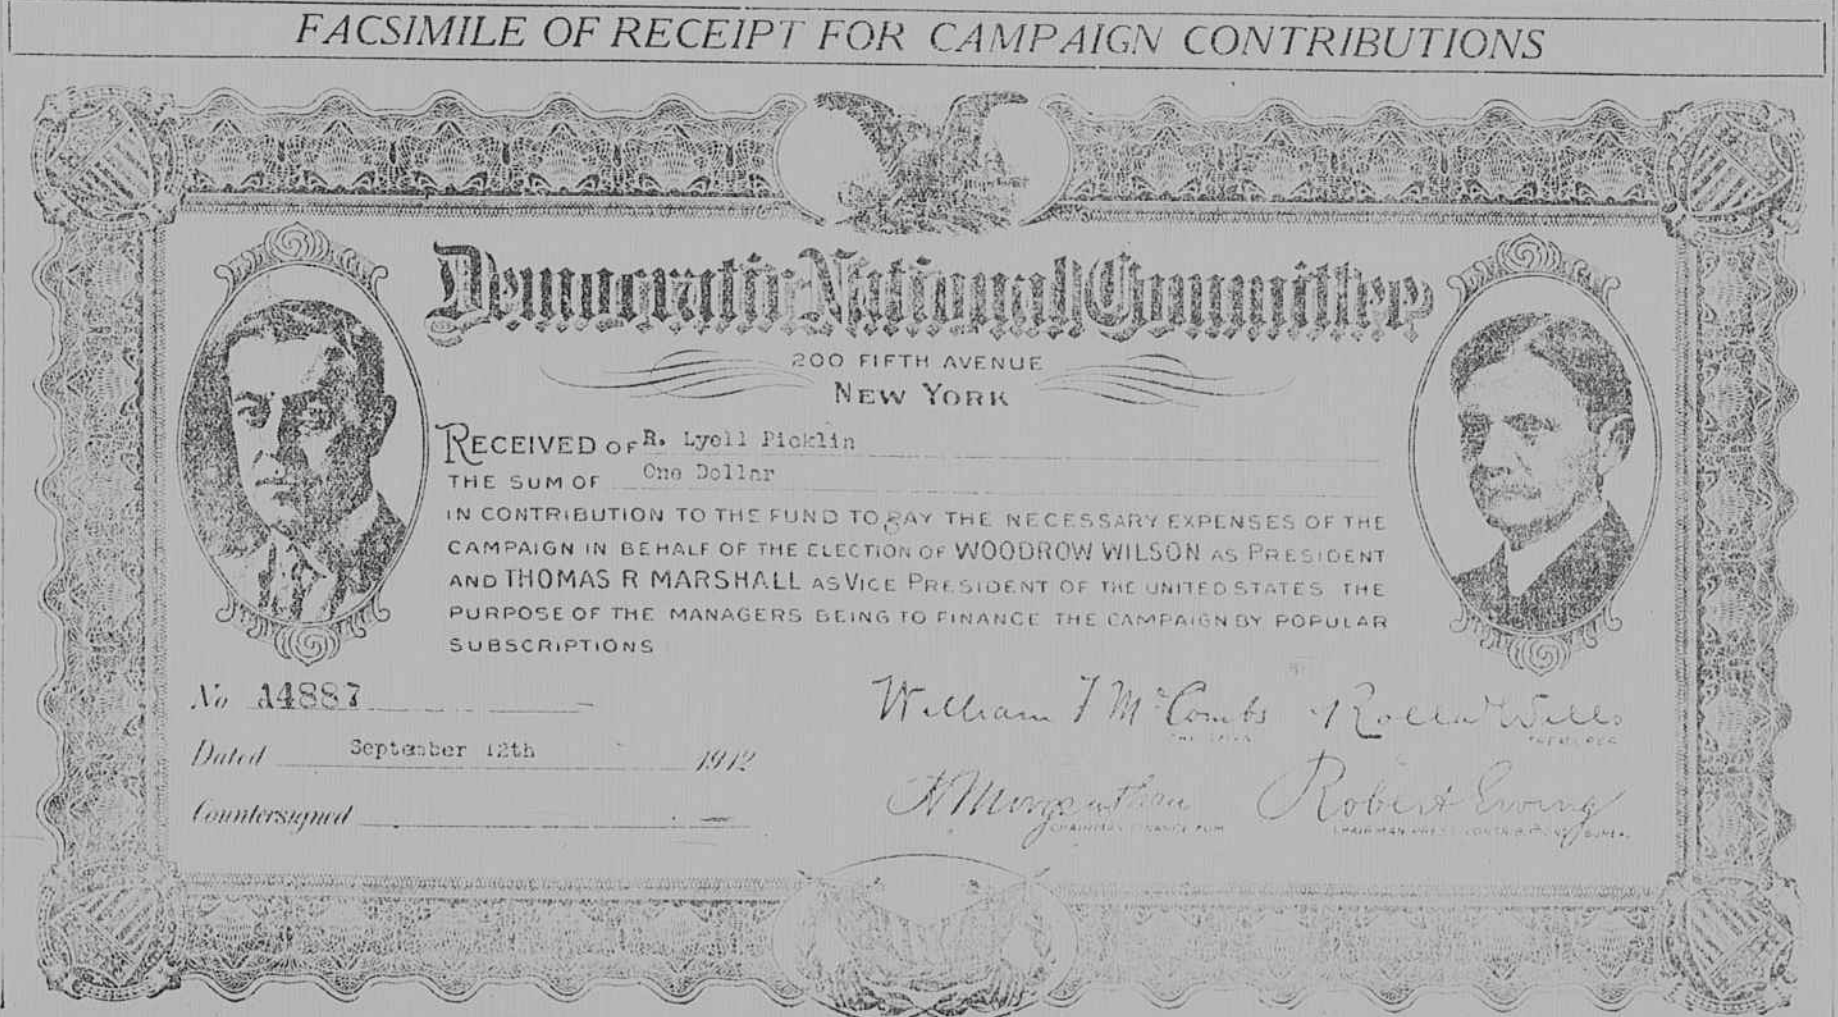 FACSIMILE OF RECEIPT FOR CAMPAIGN CONTRIBUTIONS
Democratic National Committee
200 FIFTH AVENUE
NEW YORK
RECEIVED OF R. Lyell Picklin
THE SUM OF One Dollar
IN CONTRIBUTION TO THE FUND TO PAY THE NECESSARY EXPENSES OF THE
CAMPAIGN IN BEHALF OF THE ELECTION OF WOODROW WILSON AS PRESIDENT
AND THOMAS R MARSHALL AS VICE PRESIDENT OF THE UNITED STATES THE
PURPOSE OF THE MANAGERS BEING TO FINANCE THE CAMPAIGN BY POPULAR
SUBSCRIPTIONS
No A4887
William F McCombs Rolla Wells
TREASURER
Dated September 12th 1912
H Morgenthau Robert Ewing
CHAIRMAN FINANCE COM.
Countersigned